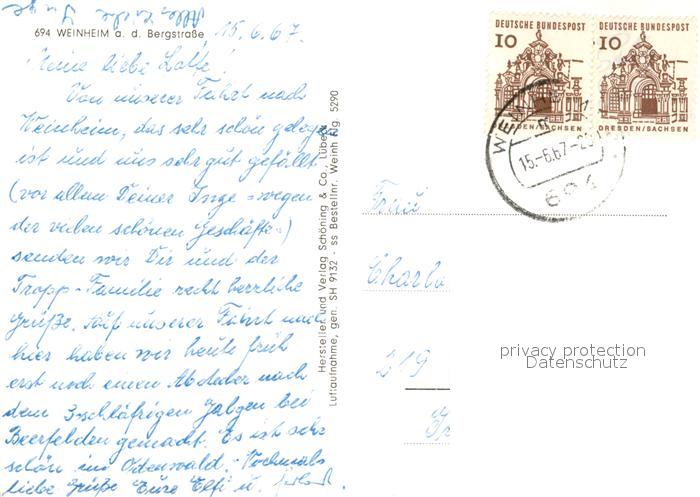 694 WEINHEIM a. d. Bergstraße
15.6.67.
Meine liebe Lotte!
Von unserer Fahrt nach
Weinheim, das sehr schön gelegen
ist und uns sehr gut gefällt
(vor allem Deiner Inge = wegen
der vielen schönen Geschäfte =)
senden wir Dir und der
Tropp-Familie recht herzliche
Grüße. Auf unserer Fahrt nach
hier haben wir heute früh
erst noch einen Abstecher nach
dem 3=schläfrigen Galgen bei
Beerfelden gemacht. Es ist sehr
schön im Odenwald. Nochmals
liebe Grüße Eure Elfi u.
Hersteller und Verlag Schöning & Co., Lübeck
Luftaufnahme, gen. SH 9132 · ss Bestellnr. Weinh Bg. 5290
DEUTSCHE BUNDESPOST
10
DRESDEN/SACHSEN
DEUTSCHE BUNDESPOST
10
DRESDEN/SACHSEN
15.-6.67-
694
Frau
Charlo
219
privacy protection
Datenschutz